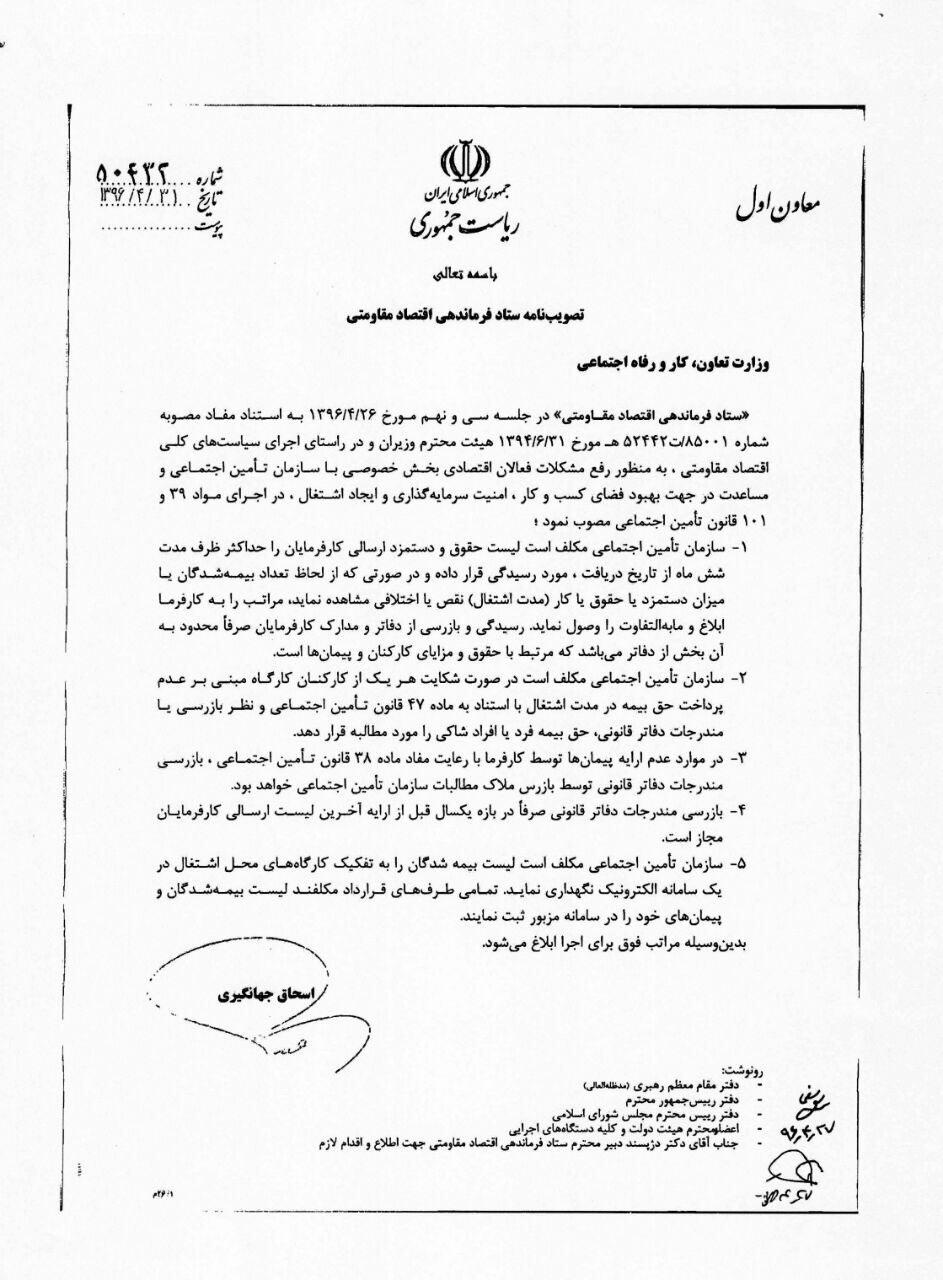 شماره ۵۰۴۳۲
تاریخ ۱۳۹۶/۴/۳۱
پیوست
جمهوری اسلامی ایران
ریاست جمهوری
معاون اول
باسمه تعالی
تصویب‌نامه ستاد فرماندهی اقتصاد مقاومتی
وزارت تعاون، کار و رفاه اجتماعی
«ستاد فرماندهی اقتصاد مقاومتی» در جلسه سی و نهم مورخ ۱۳۹۶/۴/۲۶ به استناد مفاد مصوبه
شماره ۸۵۰۰۱/ت۵۲۴۴۲ هـ مورخ ۱۳۹۴/۶/۳۱ هیئت محترم وزیران و در راستای اجرای سیاست‌های کلی
اقتصاد مقاومتی ، به منظور رفع مشکلات فعالان اقتصادی بخش خصوصی با سازمان تأمین اجتماعی و
مساعدت در جهت بهبود فضای کسب و کار ، امنیت سرمایه‌گذاری و ایجاد اشتغال ، در اجرای مواد ۳۹ و
۱۰۱ قانون تأمین اجتماعی مصوب نمود ؛
۱- سازمان تأمین اجتماعی مکلف است لیست حقوق و دستمزد ارسالی کارفرمایان را حداکثر ظرف مدت
شش ماه از تاریخ دریافت ، مورد رسیدگی قرار داده و در صورتی که از لحاظ تعداد بیمه‌شدگان یا
میزان دستمزد یا حقوق یا کار (مدت اشتغال) نقص یا اختلافی مشاهده نماید، مراتب را به کارفرما
ابلاغ و مابه‌التفاوت را وصول نماید. رسیدگی و بازرسی از دفاتر و مدارک کارفرمایان صرفاً محدود به
آن بخش از دفاتر می‌باشد که مرتبط با حقوق و مزایای کارکنان و پیمان‌ها است.
۲- سازمان تأمین اجتماعی مکلف است در صورت شکایت هر یک از کارکنان کارگاه مبنی بر عدم
پرداخت حق بیمه در مدت اشتغال با استناد به ماده ۴۷ قانون تأمین اجتماعی و نظر بازرسی یا
مندرجات دفاتر قانونی، حق بیمه فرد یا افراد شاکی را مورد مطالبه قرار دهد.
۳- در موارد عدم ارایه پیمان‌ها توسط کارفرما با رعایت مفاد ماده ۳۸ قانون تأمین اجتماعی ، بازرسی
مندرجات دفاتر قانونی توسط بازرس ملاک مطالبات سازمان تأمین اجتماعی خواهد بود.
۴- بازرسی مندرجات دفاتر قانونی صرفاً در بازه یکسال قبل از ارایه آخرین لیست ارسالی کارفرمایان
مجاز است.
۵- سازمان تأمین اجتماعی مکلف است لیست بیمه شدگان را به تفکیک کارگاه‌های محل اشتغال در
یک سامانه الکترونیک نگهداری نماید. تمامی طرف‌های قرارداد مکلفند لیست بیمه‌شدگان و
پیمان‌های خود را در سامانه مزبور ثبت نمایند.
بدین‌وسیله مراتب فوق برای اجرا ابلاغ می‌شود.
اسحاق جهانگیری
رونوشت:
- دفتر مقام معظم رهبری (مدظله‌العالی)
- دفتر رییس‌جمهور محترم
- دفتر رییس محترم مجلس شورای اسلامی
- اعضا محترم هیئت دولت و کلیه دستگاه‌های اجرایی
- جناب آقای دکتر دژپسند دبیر محترم ستاد فرماندهی اقتصاد مقاومتی جهت اطلاع و اقدام لازم
۹۶/۴/۲۷